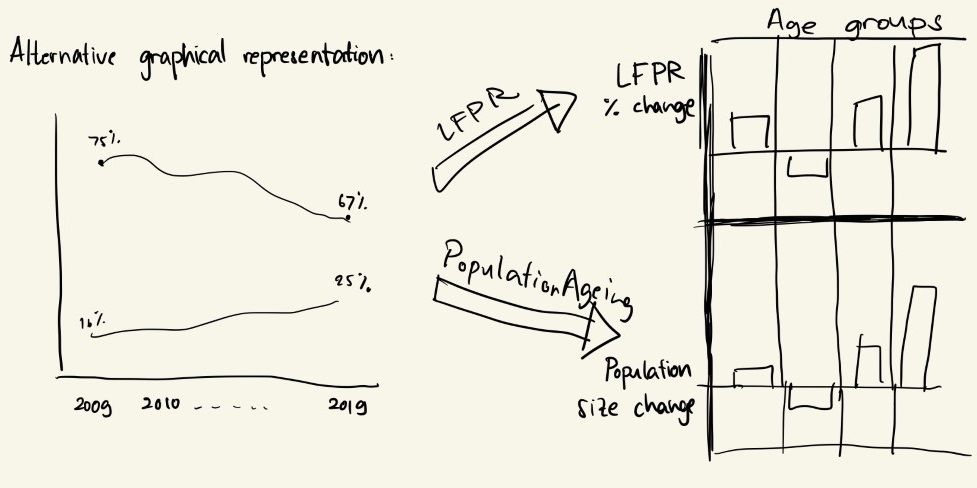 Alternative graphical representation:
75%
67%
16%
25%
2009 2010 - - - - . . . 2019
LFPR
Population Ageing
Age groups
LFPR
% change
Population
size change